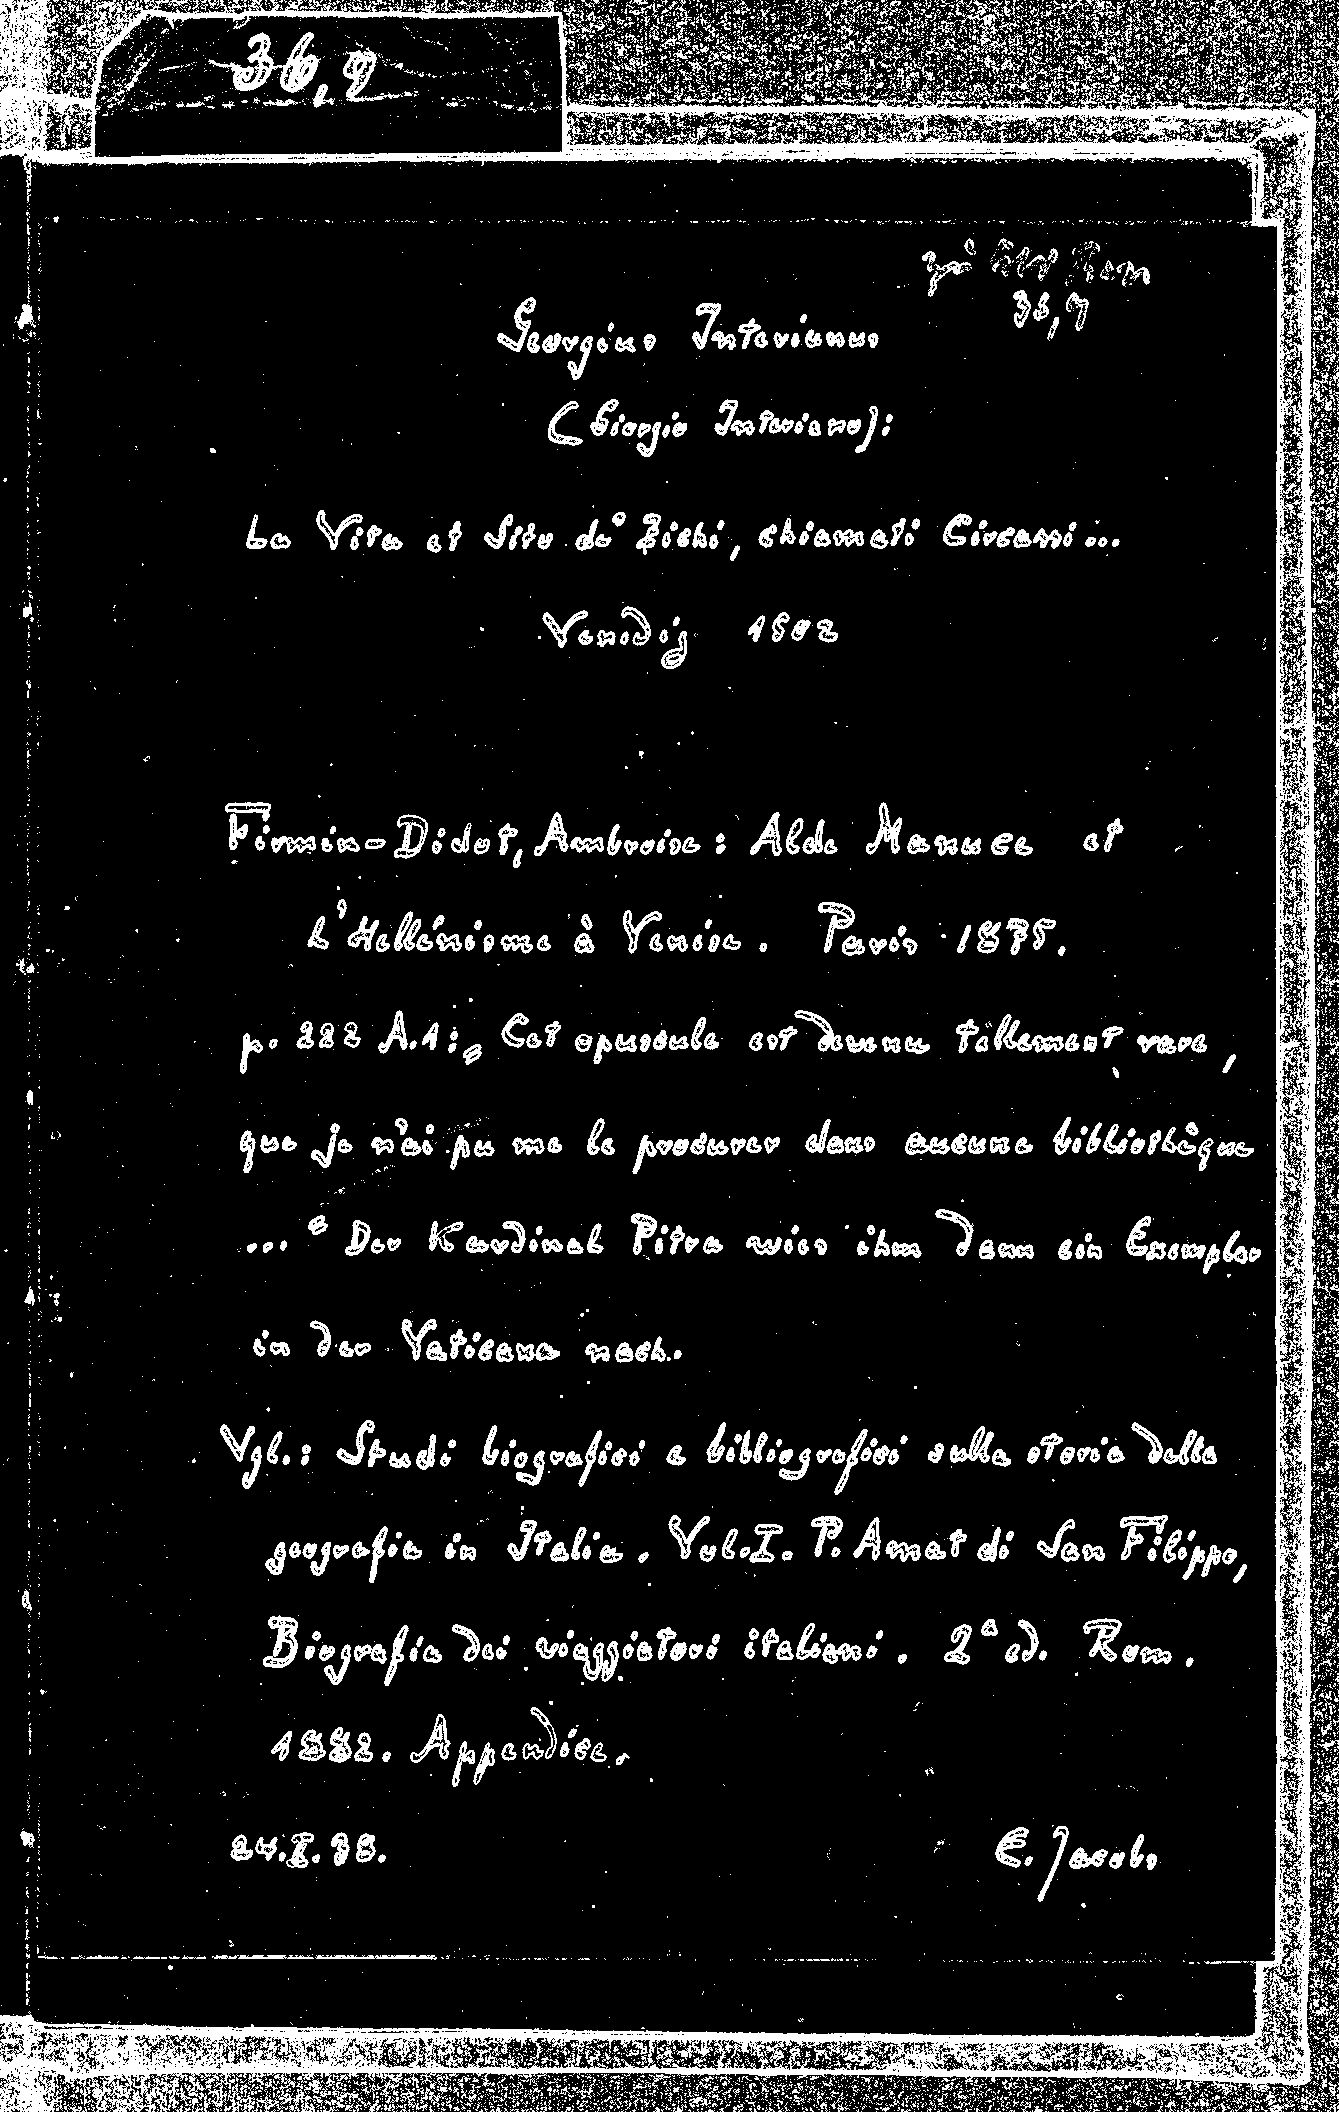 36,9
Georgius Interianus
(Giorgio Interiano):
La Vita et Sito de' Zichi, chiamati Circassi...
Venedig 1502
Firmin-Didot, Ambroise: Alde Manuce et
L'Hellénisme à Venise. Paris 1875.
p. 222 A.1: „Cet opuscule est devenu tellement rare,
que je n'ai pu me le procurer dans aucune bibliothèque
..." Der Kardinal Pitra wies ihm dann ein Exemplar
in der Vaticana nach.
Vgl.: Studi biografici e bibliografici sulla storia della
geografia in Italia. Vol. I. P. Amat di San Filippo,
Biografia dei viaggiatori italiani. 2ª ed. Rom.
1882. Appendice.
24.I.38. E. Jacobs